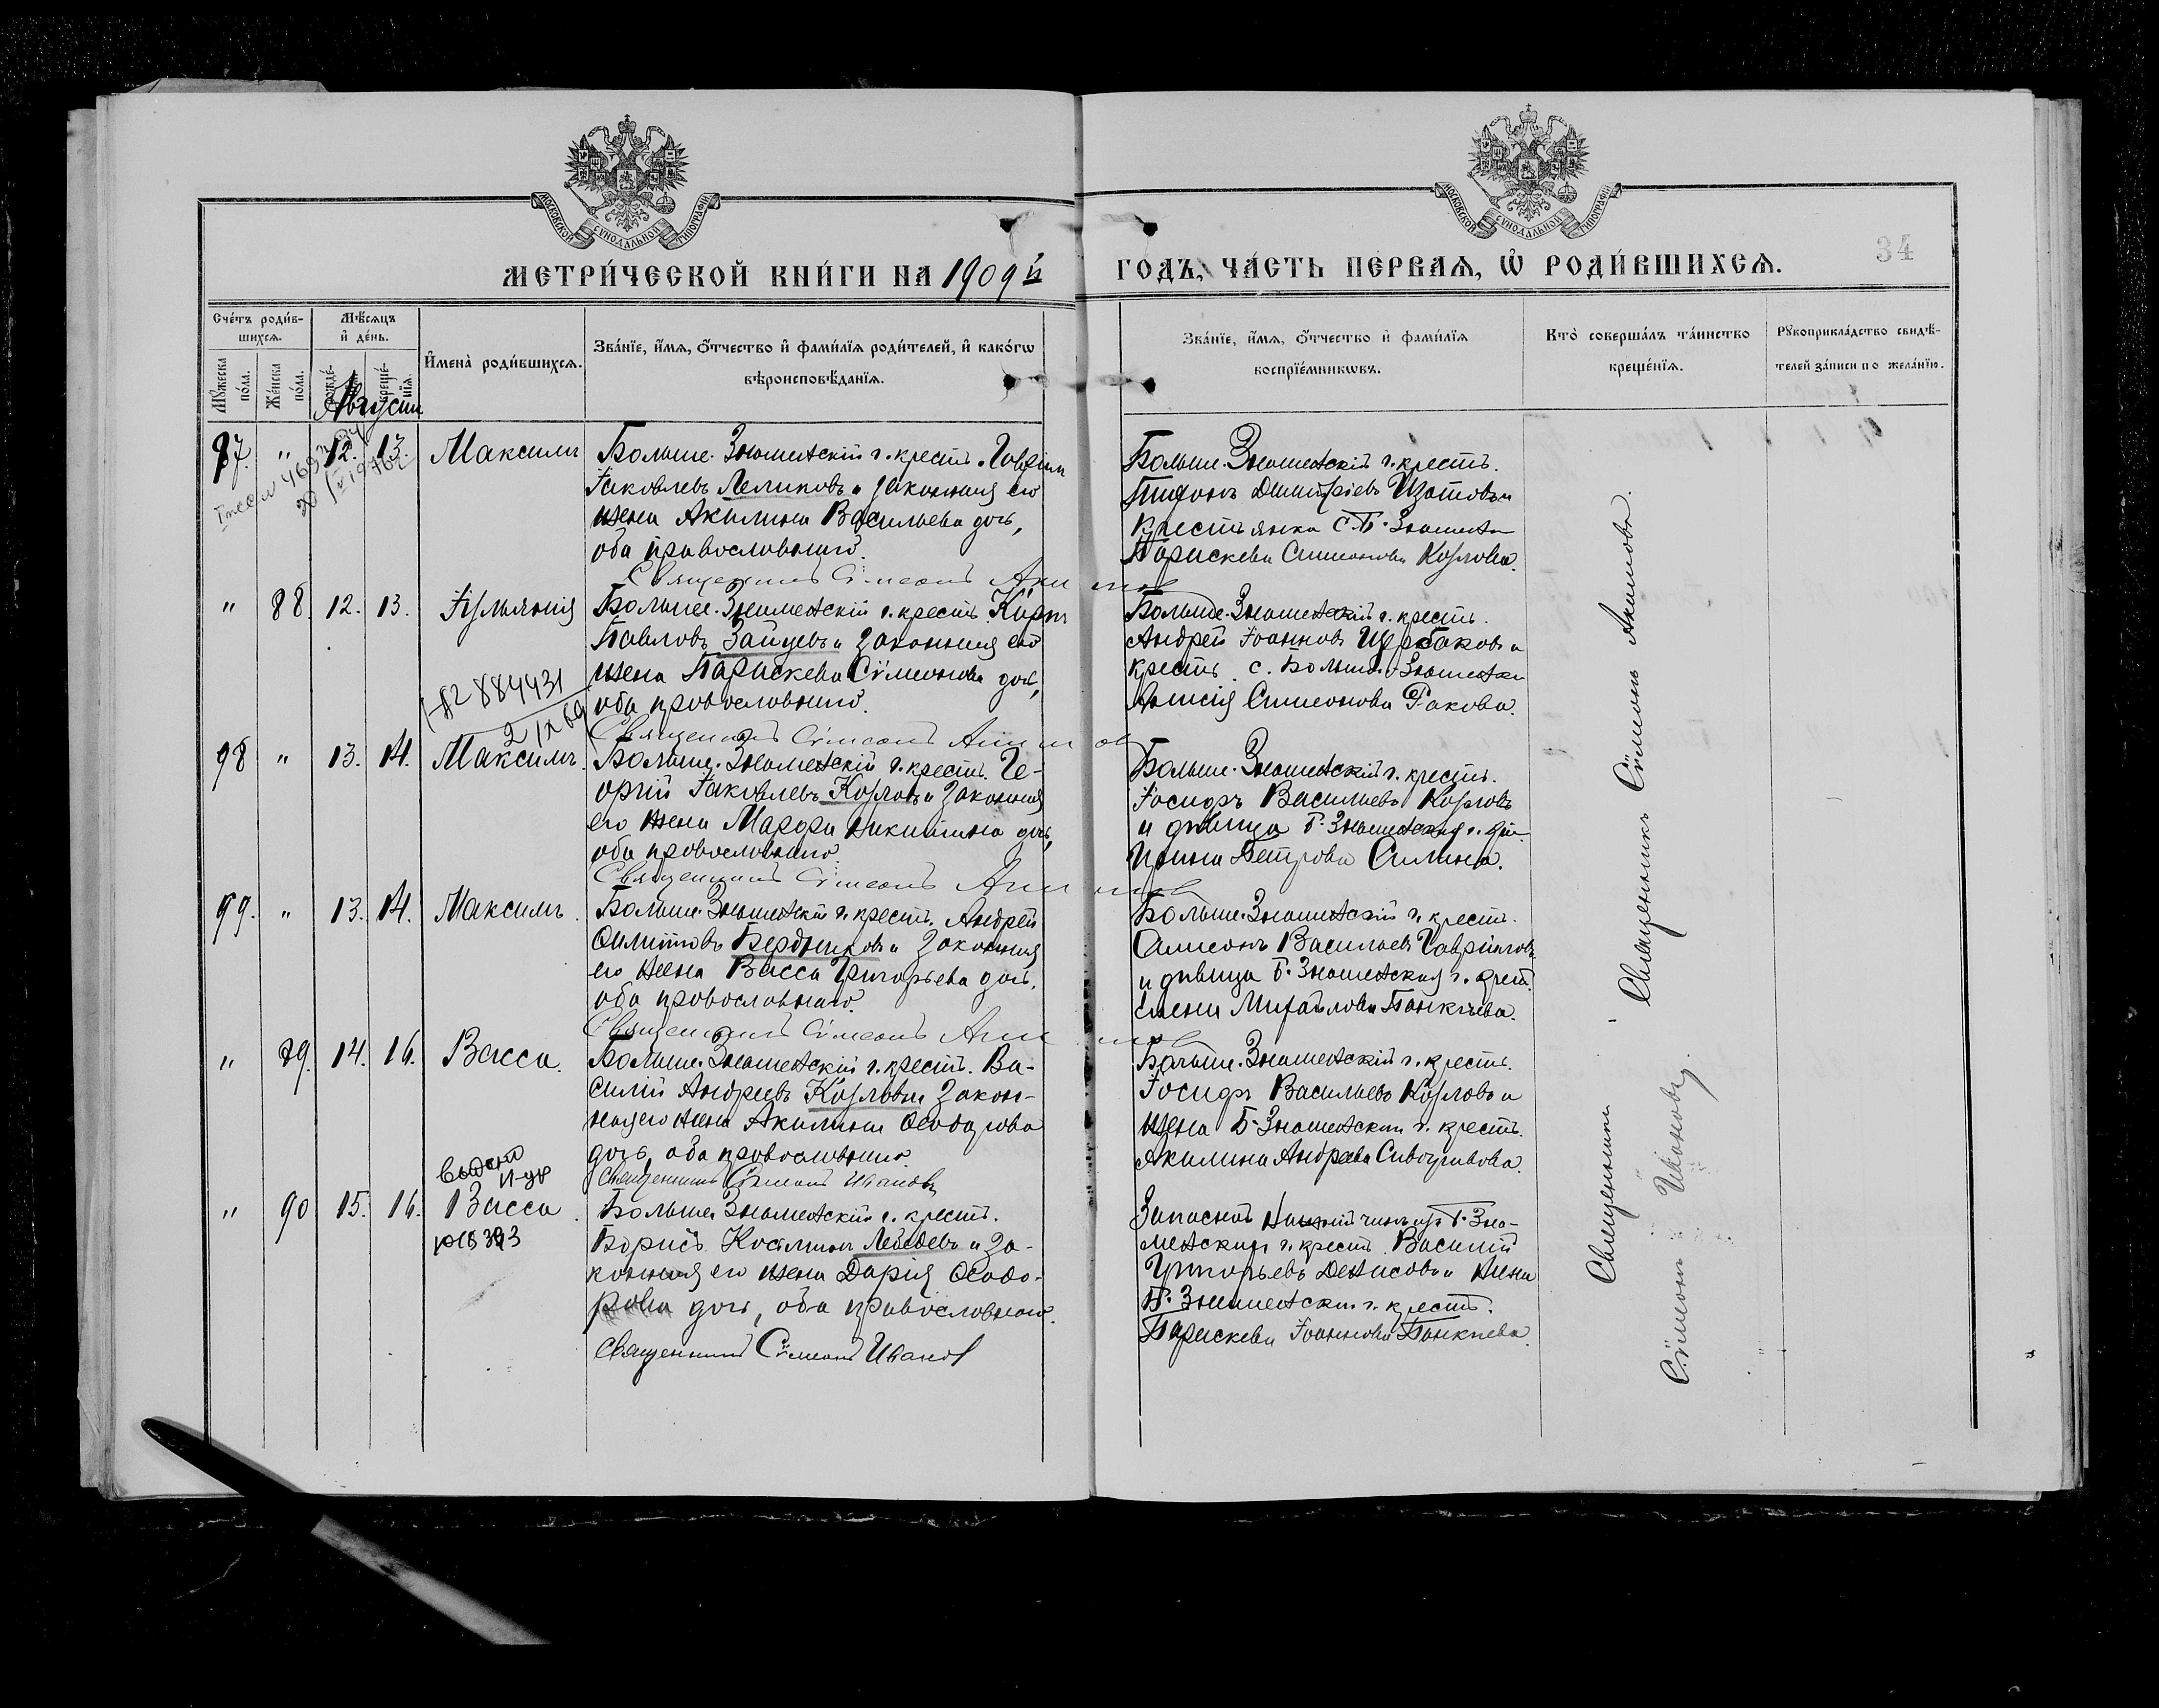 МОСКОВСКОЙ СѴНОДАЛЬНОЙ ТИПОГРАФІИ
МОСКОВСКОЙ СѴНОДАЛЬНОЙ ТИПОГРАФІИ
МЕТРИ́ЧЕСКОЙ КНИ́ГИ НА 1909й
ГОДЪ, ЧА́СТЬ ПЕ́РВАѦ, Ѡ РОДИ́ВШИХСѦ.
34
Сче́тъ роди́в-
шихсѧ.
Мѣ́сѧцъ
и҆ де́нь.
Мꙋ́жеска
по́ла.
Же́нска
по́ла.
рожде́-
креще́-
нїѧ.
И҆мена̀ роди́вшихсѧ.
Зва́нїе, и҆́мѧ, ѻ҆́тчество и҆ фами́лїѧ роди́телей, и҆ како́гѡ
вѣроисповѣ́данїѧ.
Зва́нїе, и҆́мѧ, ѻ҆́тчество и҆ фами́лїѧ
воспрїе́мникѡвъ.
Кто̀ соверша́лъ та́инство
креще́нїѧ.
Рꙋкоприкла́дство свидѣ́-
телей за́писи по жела́нїю.
Августъ
97. " 12. 13. Максимъ
Больше-Знаменскій г. крестъ. Гавріилъ
Іаковлевъ Леликовъ и законная его
жена Акилина Васильева дочь,
оба православнаго.
Священникъ Сімеонъ Акимовъ
Больше-Знаменскій г. крестъ.
Димитріевъ Изотовъ и
крестьянка с. Б. Знаменки
Параскева Симеонова Козлова.
" 88. 12. 13. Іуліанія
Больше-Знаменскій г. крестъ. Киръ
Павловъ Зайцевъ и законная его
жена Параскева Сімеонова дочь,
оба православнаго.
Священникъ Сімеонъ Акимовъ
Больше-Знаменскій г. крестъ.
Андрей Іоанновъ Щербаковъ и
крестъ. с. Больше-Знаменки
Симеонова Ракова.
884431
98 " 13. 14. Максимъ.
Больше-Знаменскій г. крестъ. Ге-
оргій Іаковлевъ Козловъ и законная
его жена Марфа Никитина дочь,
оба православнаго.
Священникъ Сімеонъ Акимовъ
Больше-Знаменскій г. крестъ.
Іосифъ Васильевъ Козловъ
и дѣвица Б. Знаменская г. кр.
Ирина Петрова Силина.
99. " 13. 14. Максимъ.
Больше-Знаменскій г. крестъ. Андрей
Филипповъ Бердниковъ и законная
его жена Васса Григорьева дочь,
оба православнаго.
Священникъ Сімеонъ Акимовъ
Больше-Знаменскій г. крестъ.
Симеонъ Васильевъ Гавриловъ
и дѣвица Б. Знаменская г. крест.
Елена Михайлова Панкѣева.
" 89. 14. 16. Васса.
Больше-Знаменскій г. крестъ. Ва-
силій Андреевъ Козловъ и закон-
ная его жена Акилина Ѳеодорова
дочь, оба православнаго.
Священникъ Сімеонъ Ивановъ
Больше-Знаменскій г. крестъ.
Іосифъ Васильевъ Козловъ и
жена Б. Знаменскаго г. крестъ.
Акилина Андреева Сивогривова.
" 90 15. 16. Васса.
Больше-Знаменскій г. крестъ.
Борисъ Косминъ Лебедевъ и за-
конная его жена Дарія Ѳеодо-
рова дочь, оба православнаго.
Священникъ Сімеонъ Ивановъ
Запасной нижній чинъ изъ Б. Зна-
менскихъ г. крестъ. Василій
Григорьевъ Денисовъ и жена
Б. Знаменскаго г. крестъ.
Параскева Іоаннова Панкѣева.
Священникъ Сѵмеонъ Акимовъ.
Священникъ
Сѵмеонъ Ивановъ.